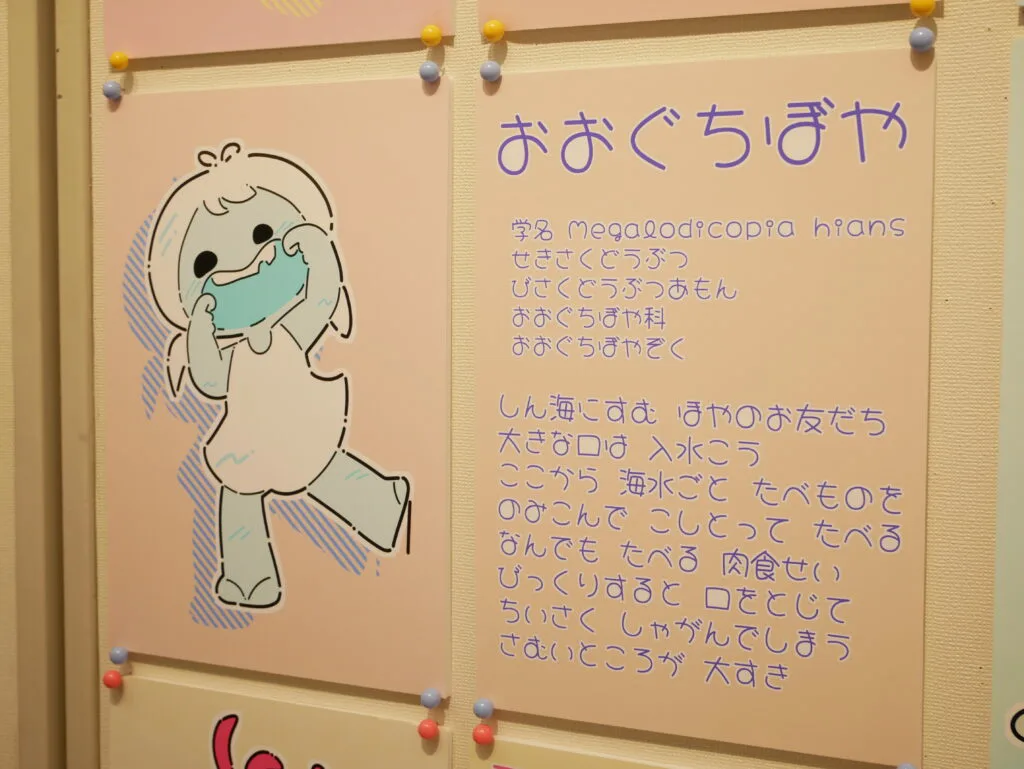 おおぐちぼや
学名 megalodicopia hians
せきさくどうぶつ
びさくどうぶつあもん
おおぐちぼや科
おおぐちぼやぞく
しん海にすむ ほやのお友だち
大きな口は 入水こう
ここから 海水ごと たべものを
のみこんで こしとって たべる
なんでも たべる 肉食せい
びっくりすると 口をとじて
ちいさく しゃがんでしまう
さむいところが 大すき